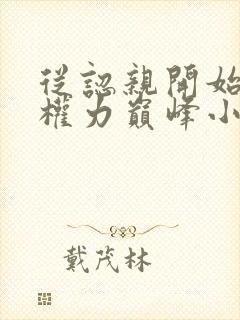 從認親開始
權力巔峰小
戴茂林